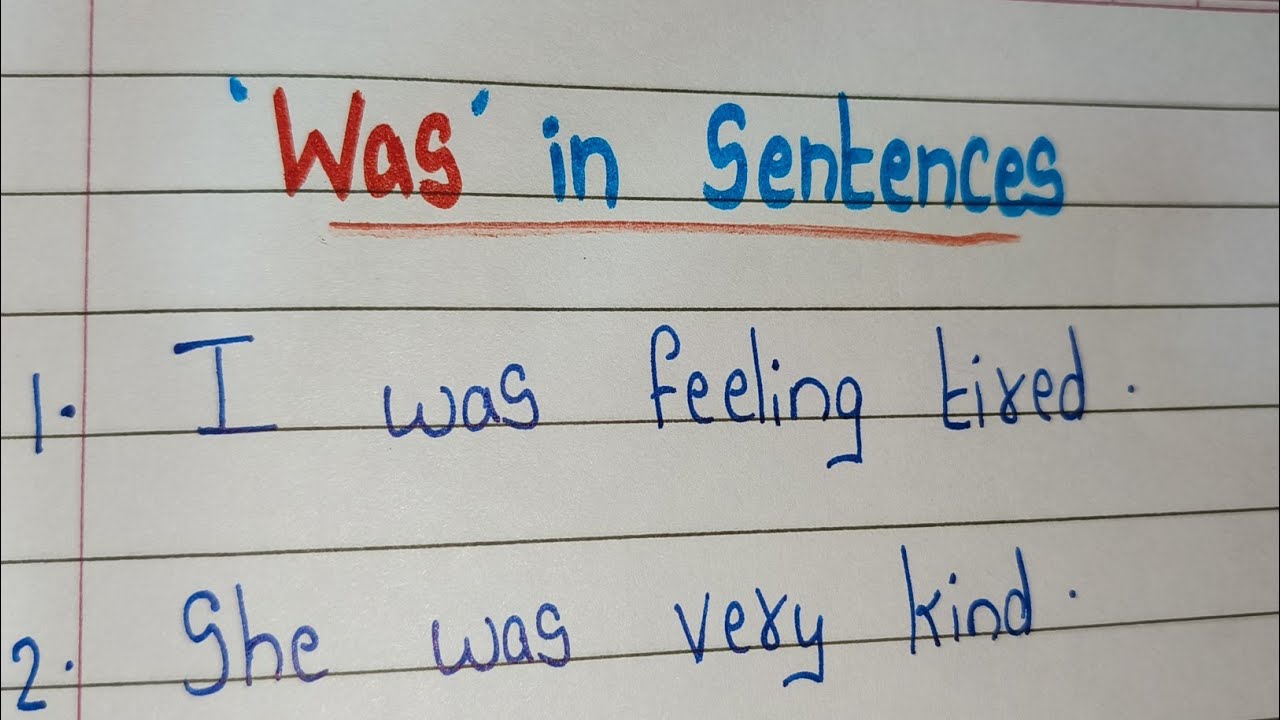 'Was' in Sentences
1. I was feeling tired.
2. She was very kind.